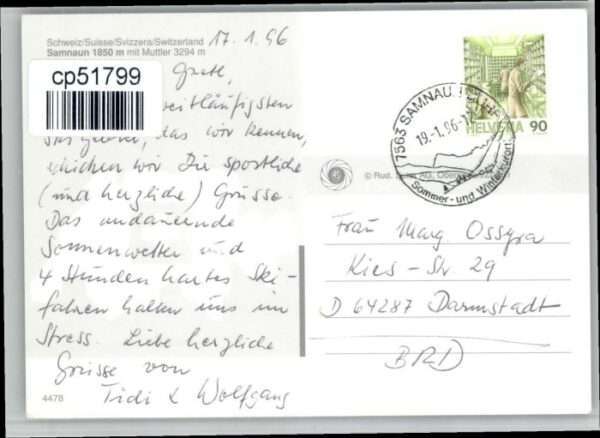 Schweiz/Suisse/Svizzera/Switzerland
Samnaun 1850 m mit Muttler 3294 m
17.1.96
cp51799
Gretl,
weitläufigsten
Skigebiet, das wir kennen,
schicken wir Dir sportliche
(und herzliche) Grüsse.
Das andauernde
Sonnenwetter und
4 Stunden hartes Ski-
fahren halten uns im
Stress. Liebe herzliche
Grüsse von
Tidi & Wolfgang
4478
7563 SAMNAUN
19.-1.96-17
Sommer- und Winterkurort
HELVETIA 90
© Rud. AG,
Frau Marg. Ossyra
Kies-Str 29
D 64287 Darmstadt
BRD